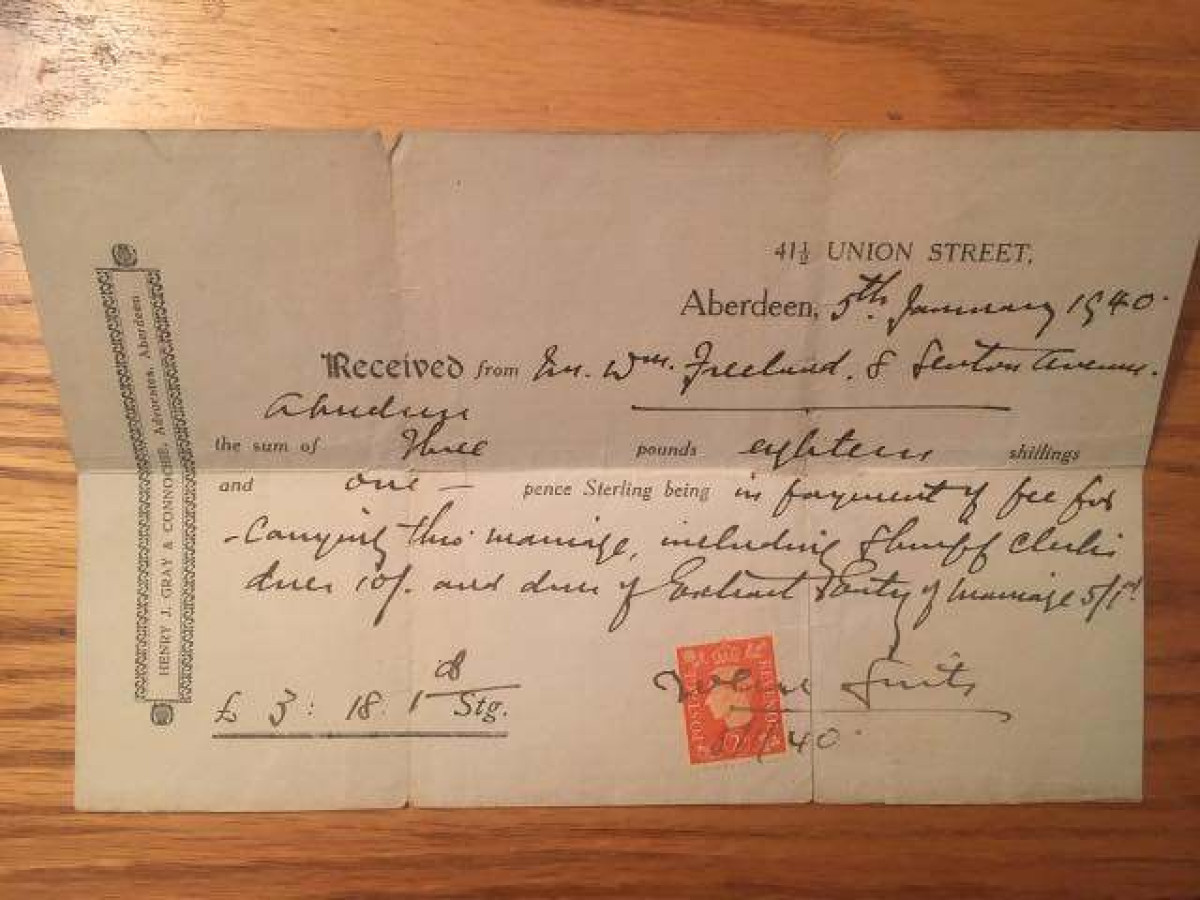 41½ UNION STREET,
Aberdeen, 5th January 1940.
Received from Mr. Wm. Freeland. 8 Seaton Avenue.
Aberdeen
the sum of Three pounds eighteen shillings
and one — pence Sterling being in payment of fee for
carrying this marriage, including Sheriff Clerks
dues 10/. and dues of Extract Entry of marriage 5/1d
£ 3: 18. 1d Stg.
HENRY J. GRAY & CONNOCHIE, Advocates, Aberdeen
REVENUE
POSTAGE